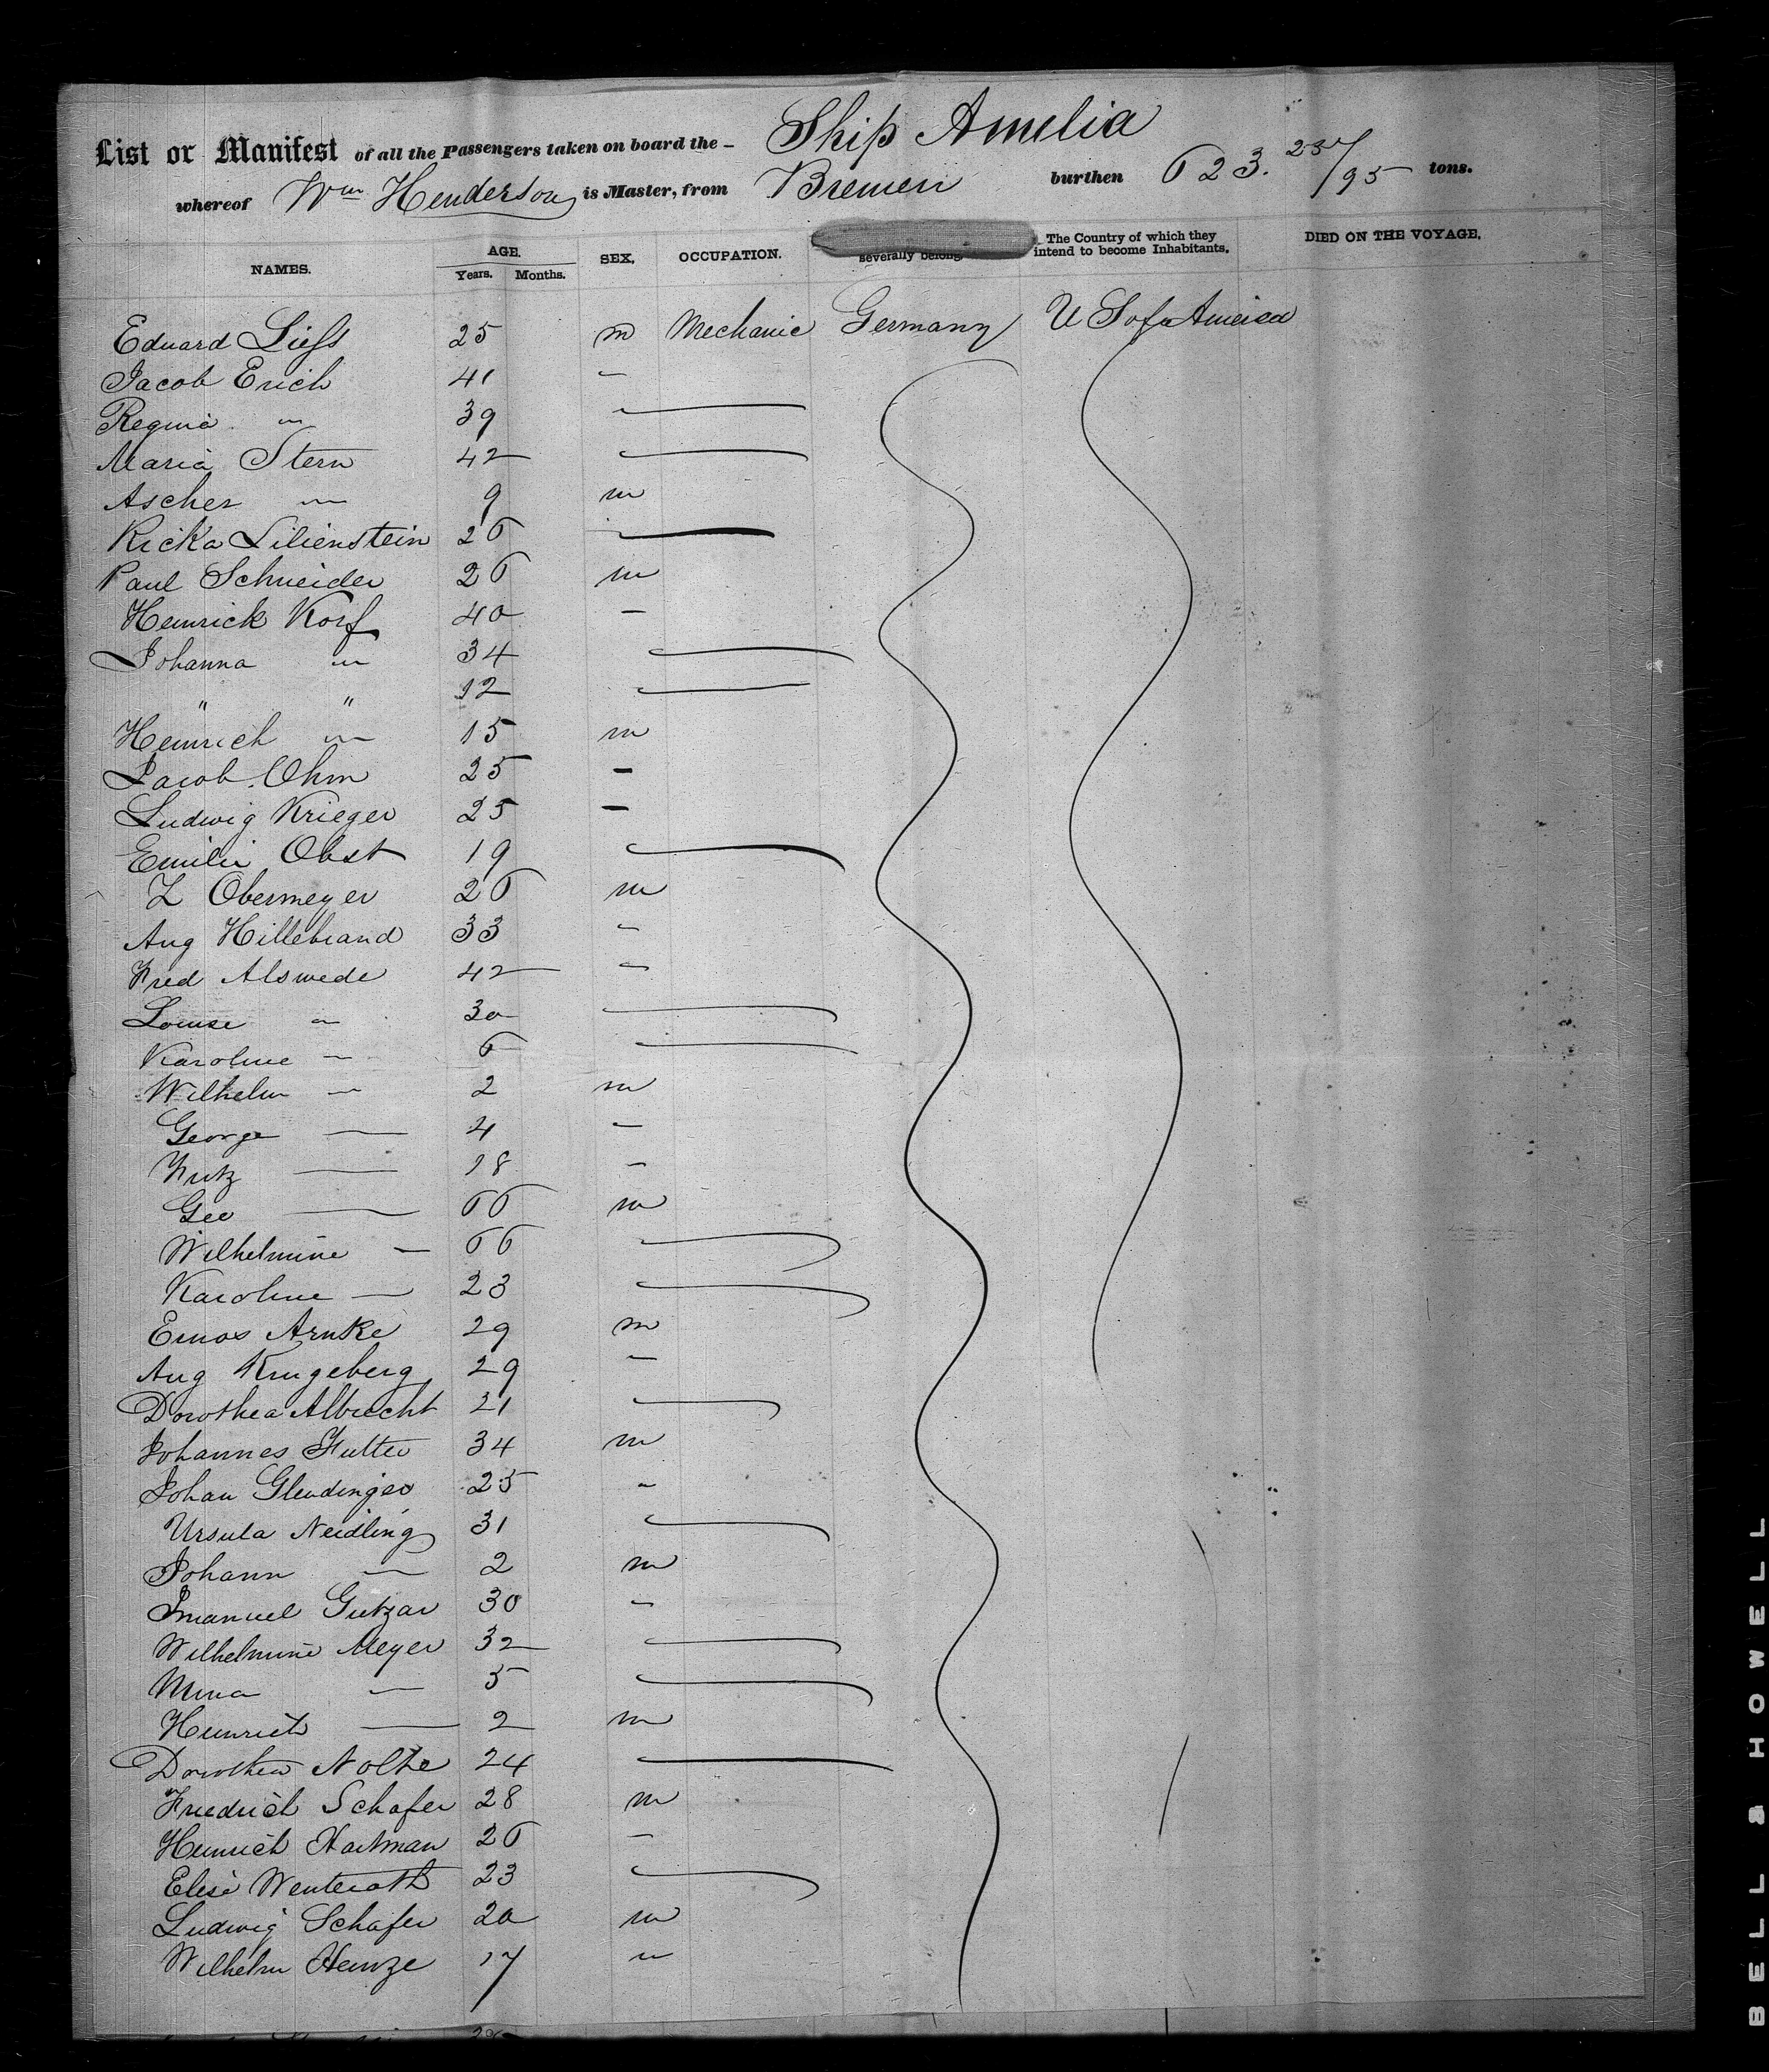 List or Manifest of all the Passengers taken on board the - Ship Amelia
whereof Wm Henderson is Master, from Bremen burthen 623. /95 tons.
NAMES. AGE. Years. Months. SEX. OCCUPATION. severally belong. The Country of which they intend to become Inhabitants. DIED ON THE VOYAGE.
Eduard Liefs 25 m Mechanic Germany U S of America
Jacob Erich 41 -
Regina " 39
Maria Stern 42
Ascher " 9 m
Ricka Lilienstein 26
Paul Schneider 26 m
Heinrick Korf 40 -
Johanna " 34
" " 12
Heinrich " 15 m
Jacob Ohm 25 -
Ludwig Krieger 25 -
Emilie Obst 19
L Obermeyer 26 m
Aug Hillebrand 33 -
Fred Alswede 42 -
Louise " 30
Karoline - 6
Wilhelm - 2 m
George - 4 -
Fritz - 18 -
Geo - 66 m
Wilhelmine - 66
Karoline - 23
Arnke 29 m
Aug Kingeberg 29 -
Dorothea Albrecht 21
Johannes 34 m
Johan Glendinger 25 -
Ursula Neidling 31
Johann - 2 m
Imanuel Gutzar 30 -
Wilhelmine Meyer 32
Mina - 5
Heinrich - 2 m
Dorothea Nolte 24
Friedrich Schafer 28 m
Heinrich Hartman 26 -
Elise Wenteroth 23
Ludwig Schafer 20 m
Wilhelm Heinze 17 "
BELL & HOWELL